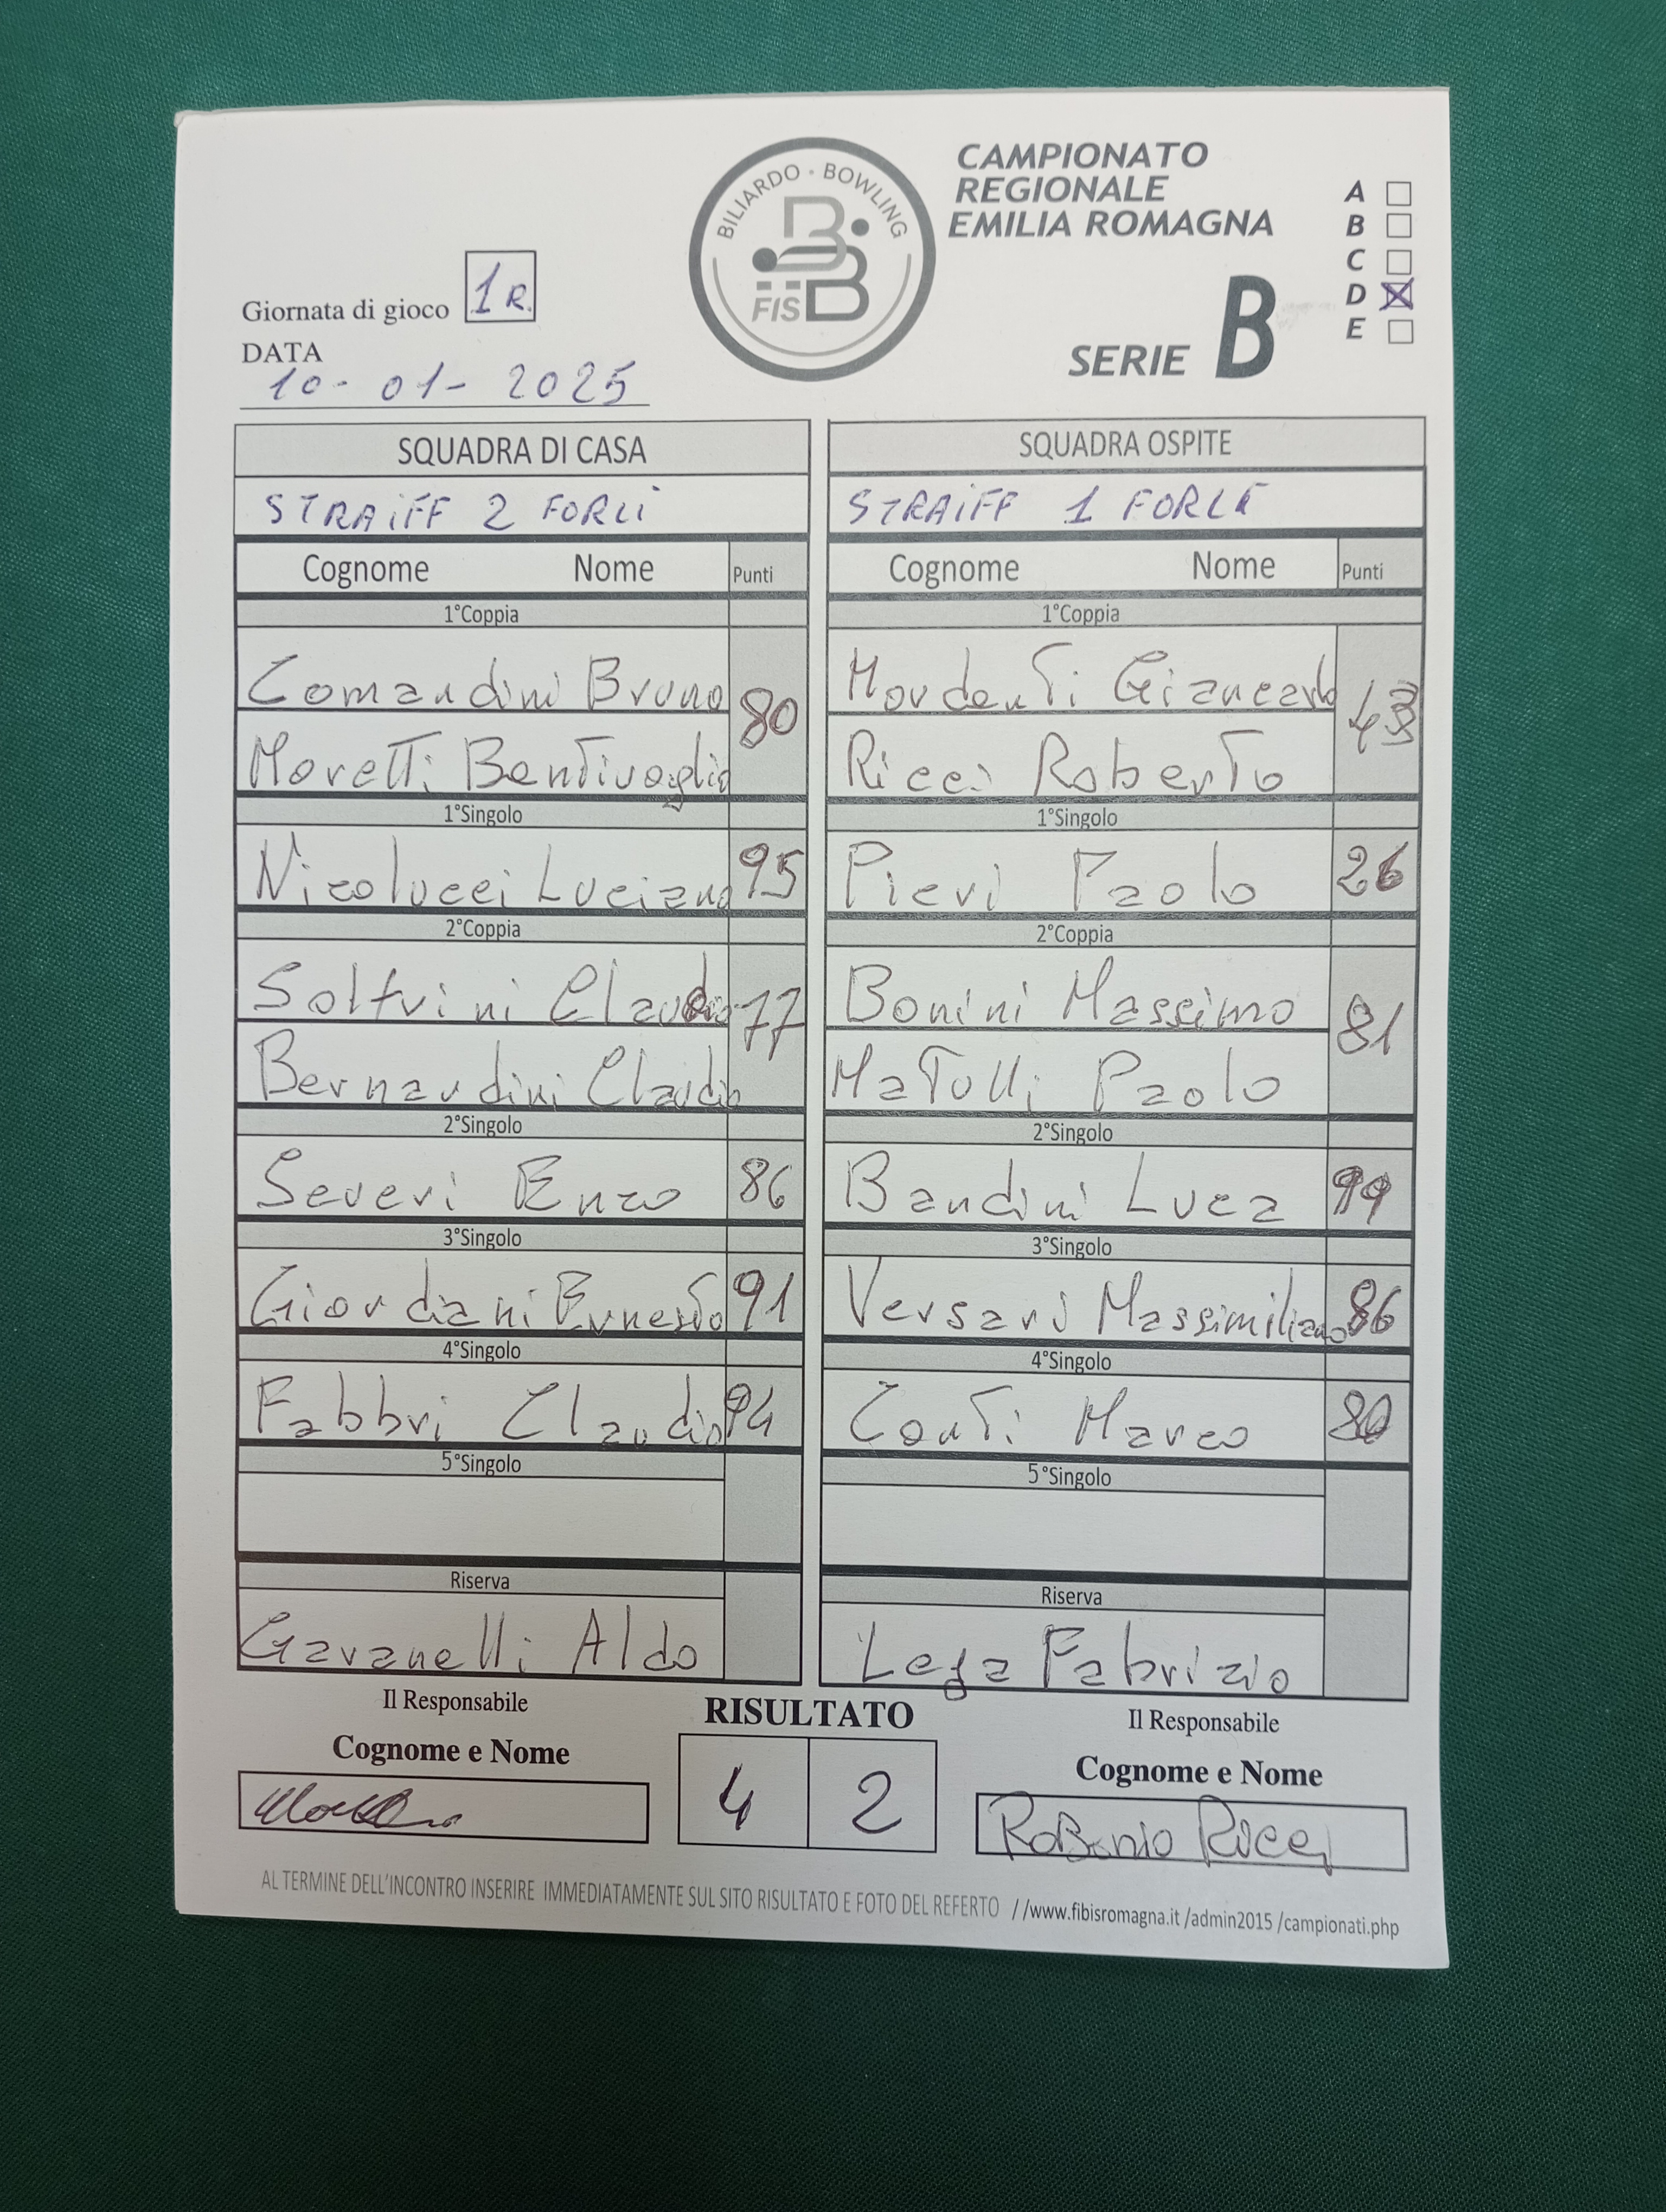 BILIARDO · BOWLING
FISBB
CAMPIONATO
REGIONALE
EMILIA ROMAGNA
SERIE B
A
B
C
D X
E
Giornata di gioco 1 R.
DATA
10-01-2025
SQUADRA DI CASA
STRAIFF 2 FORLI
Cognome Nome Punti
1°Coppia
Comandini Bruno 80
Moretti Bentivoglio
1°Singolo
Nicolucci Luciano 95
2°Coppia
Solfrini Claudio 77
Bernardini Claudio
2°Singolo
Severi Enzo 86
3°Singolo
Giordani Ernesto 91
4°Singolo
Fabbri Claudio 94
5°Singolo
Riserva
Gavanelli Aldo
Il Responsabile
Cognome e Nome
SQUADRA OSPITE
STRAIFF 1 FORLI
Cognome Nome Punti
1°Coppia
Mordenti Giancarlo
Ricci Roberto
1°Singolo
Pievi Paolo 26
2°Coppia
Bonini Massimo 81
Matulli Paolo
2°Singolo
Bandini Luca 99
3°Singolo
Versari Massimiliano 86
4°Singolo
Conti Marco 80
5°Singolo
Riserva
Lega Fabrizio
Il Responsabile
Cognome e Nome
Roberto Ricci
RISULTATO
4 2
AL TERMINE DELL'INCONTRO INSERIRE IMMEDIATAMENTE SUL SITO RISULTATO E FOTO DEL REFERTO //www.fibisromagna.it /admin2015 /campionati.php